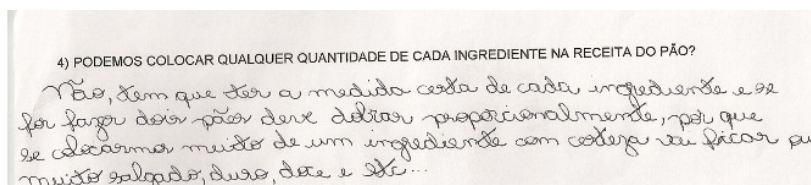 4) PODEMOS COLOCAR QUALQUER QUANTIDADE DE CADA INGREDIENTE NA RECEITA DO PÃO?
Não, tem que ter a medida certa de cada ingrediente e se
for fazer dois pães deve dobrar proporcionalmente, por que
se colocarmos muito de um ingrediente com certeza vai ficar ou
muito salgado, duro, doce e etc...